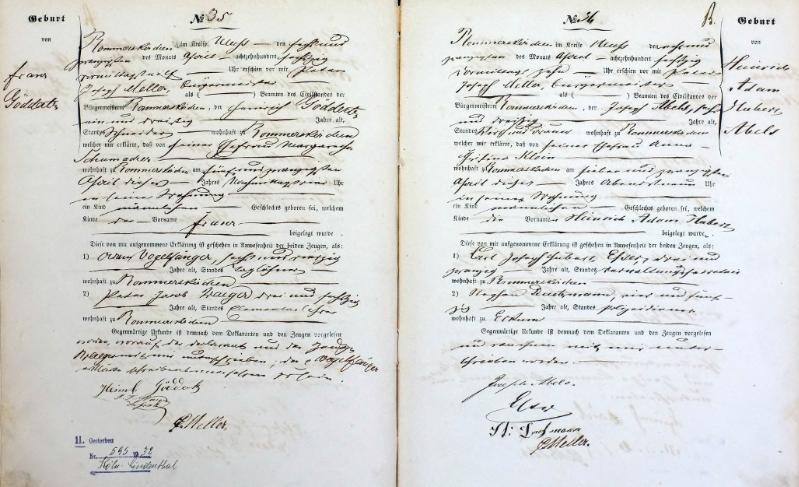 Geburt
von
Franz
Göddertz
№ 35
Rommerskirchen im Kreise Neuß den sechs und
zwanzigsten des Monats April achtzehnhundert sechszig
Uhr erschien vor mir Peter
Joseph Meller, Bürgermeister
als Beamten des Civilstandes der
Bürgermeisterei Rommerskirchen, der Heinrich Göddertz
ein und dreißig Jahre alt,
Standes Schneider wohnhaft zu Rommerskirchen
welcher mir erklärte, daß von seiner Ehefrau Margaretha
Schumacher
wohnhaft zu Rommerskirchen am fünf und zwanzigsten
April dieses Jahres Nachmittags Uhr
in seiner Wohnung
ein Kind männlichen Geschlechts geboren sei, welchem
Kinde der Vorname Franz
beigelegt wurde.
Diese von mir aufgenommene Erklärung ist geschehen in Anwesenheit der beiden Zeugen, als:
1) Vogelsanger, sechs und vierzig
Jahre alt, Standes Taglöhner
wohnhaft zu Rommerskirchen
2) Peter Jacob Kraeger drei und sechszig
Jahre alt, Standes
wohnhaft zu Rommerskirchen
Gegenwärtige Urkunde ist demnach dem Deklaranten und den Zeugen vorgelesen
worden, worauf der Declarant und der Zeuge
Göddertz
PMeller.
11. Gestorben
Nr. 595 1932
Köln-Lindenthal
№ 36
B.
Geburt
von
Heinrich
Adam
Hubert
Abels
Rommerskirchen im Kreise Neuß den
zwanzigsten des Monats April achtzehnhundert sechszig
Vormittags zehn Uhr erschien vor mir Peter
Joseph Meller, Bürgermeister
als Beamten des Civilstandes der
Bürgermeisterei Rommerskirchen, der Joseph Abels, sechs
und dreißig Jahre alt,
Standes wohnhaft zu Rommerskirchen
welcher mir erklärte, daß von seiner Ehefrau Anna
Klein
wohnhaft zu Rommerskirchen am sieben und zwanzigsten
April dieses Jahres Abends neun Uhr
in seiner Wohnung
ein Kind männlichen Geschlechts geboren sei, welchem
Kinde die Vornamen Heinrich Adam Hubert
beigelegt wurde.
Diese von mir aufgenommene Erklärung ist geschehen in Anwesenheit der beiden Zeugen, als:
1) Carl Joseph Hubert Esser, drei und
zwanzig Jahre alt, Standes
wohnhaft zu Rommerskirchen
2) vier und fünf-
zig Jahre alt, Standes
wohnhaft zu Eckum
Gegenwärtige Urkunde ist demnach dem Deklaranten und den Zeugen vorgelesen
und von ihnen mit mir unter-
schrieben worden
Joseph Abels.
Esser
PMeller.